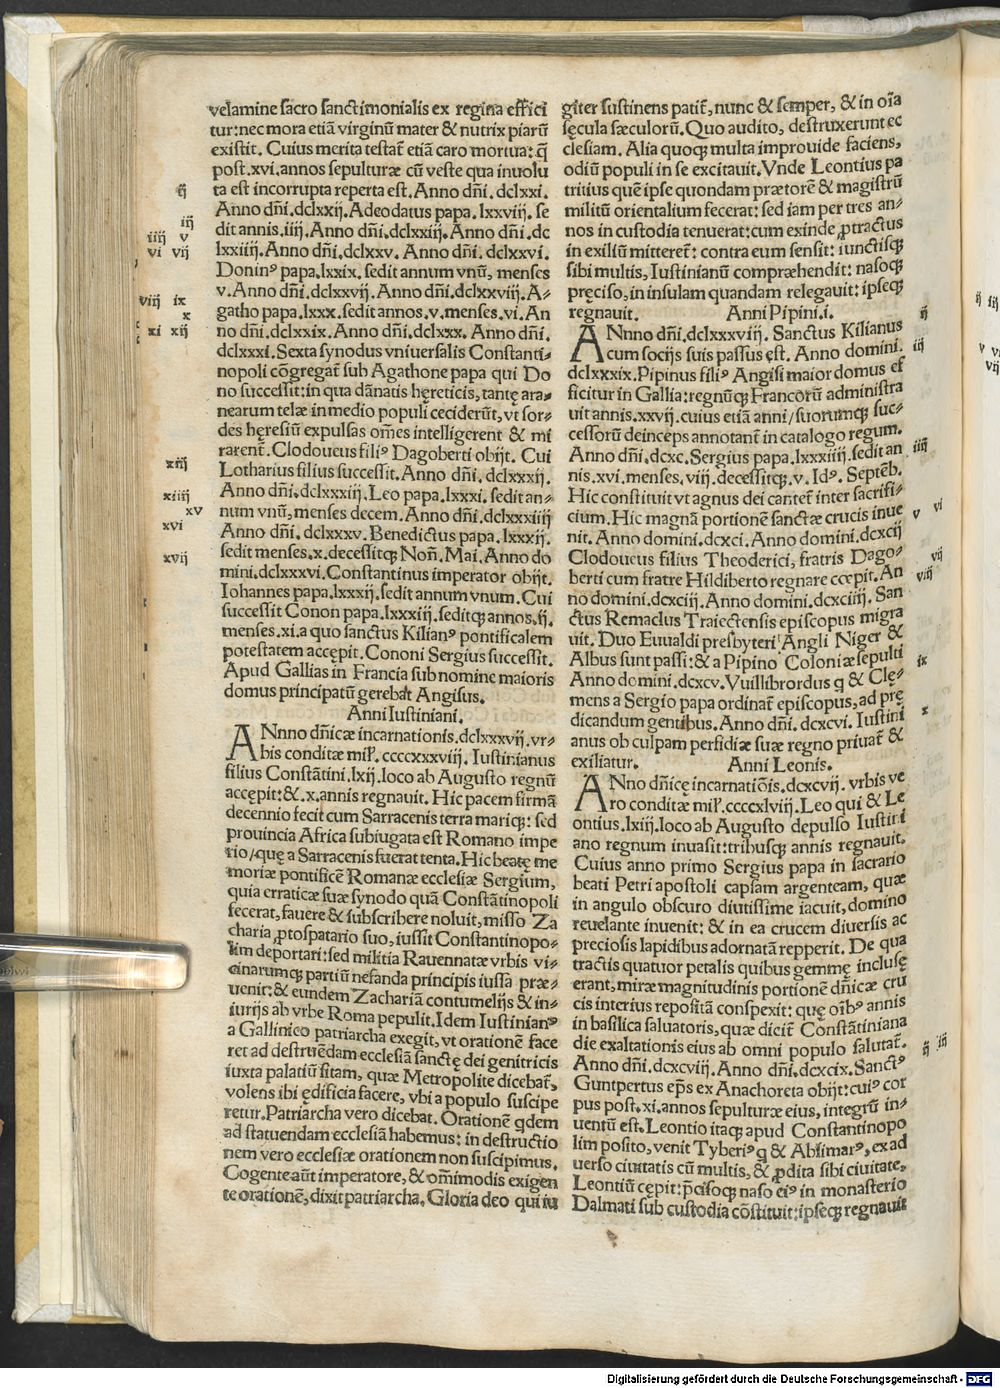 velamine sacro sanctimonialis ex regina effici
tur: nec mora etiā virginū mater & nutrix piarū
existit. Cuius merita testat̄ etiā caro mortua: q̄
post .xvi. annos sepulturæ cū veste qua inuolu
ta est incorrupta reperta est. Anno dñi. dclxxi.
ij
Anno dñi. dclxxij. Adeodatus papa. lxxviij. se
iij
dit annis. iiij. Anno dñi. dclxxiij. Anno dñi. dc
iiij v
lxxiiij. Anno dñi. dclxxv. Anno dñi. dclxxvi.
vi vij
Doninꝰ papa. lxxix. sedit annum vnū, menses
v. Anno dñi. dclxxvij. Anno dñi. dclxxviij. A-
viij ix
gatho papa. lxxx. sedit annos. v. menses. vi. An
x
no dñi. dclxxix. Anno dñi. dclxxx. Anno dñi.
xi xij
dclxxxi. Sexta synodus vniuersalis Constanti-
nopoli cōgregat̄ sub Agathone papa qui Do
no successit: in qua dānatis hęreticis, tantę ara-
nearum telæ in medio populi ceciderūt, vt sor-
des hęresiū expulsas om̄es intelligerent & mi
rarent̄. Clodoueus filiꝰ Dagoberti obijt. Cui
Lotharius filius successit. Anno dñi. dclxxxij.
xiij
Anno dñi. dclxxxiij. Leo papa. lxxxi. sedit an-
xiiij
num vnū, menses decem. Anno dñi. dclxxxiiij
xv
Anno dñi. dclxxxv. Benedictus papa. lxxxij.
xvi
sedit menses. x. decessitꝗ Noñ. Mai. Anno do
xvij
mini. dclxxxvi. Constantinus imperator obijt.
Iohannes papa. lxxxij. sedit annum vnum. Cui
successit Conon papa. lxxxiij. seditꝗ annos. ij.
menses. xi. a quo sanctus Kilianꝰ pontificalem
potestatem accępit. Cononi Sergius successit.
Apud Gallias in Francia sub nomine maioris
domus principatū gerebat Angisus.
Anni Iustiniani.
ANnno dñicæ incarnationis. dclxxxvij. vr-
bis conditæ miľ. ccccxxxviij. Iustinianus
filius Constātini. lxij. loco ab Augusto regnū
accępit: &. x. annis regnauit. Hic pacem firmā
decennio fecit cum Sarracenis terra mariꝗ: sed
prouincia Africa subiugata est Romano impe
rio/quę a Sarracenis fuerat tenta. Hic beatę me
moriæ pontificē Romanæ ecclesiæ Sergium,
quia erraticæ suæ synodo quā Constātinopoli
fecerat, fauere & subscribere noluit, misso Za
charia ꝓtospatario suo, iussit Constantinopo-
lim deportari: sed militia Rauennatæ vrbis vi-
cinarumꝗ partiū nefanda principis iussa præ-
uenit: & eundem Zachariā contumelijs & in-
iurijs ab vrbe Roma pepulit. Idem Iustinianꝰ
a Gallinico patriarcha exegit, vt orationē face
ret ad destruēdam ecclesiā sanctę dei genitricis
iuxta palatiū sitam, quæ Metropolite dicebat̄,
volens ibi ędificia facere, vbi a populo suscipe
retur. Patriarcha vero dicebat. Orationē qdem
ad statuendam ecclesiā habemus: in destructio
nem vero ecclesiæ orationem non suscipimus.
Cogente aūt imperatore, & om̄imodis exigen
te orationē, dixit patriarcha. Gloria deo qui iu
giter sustinens patit̄, nunc & semper, & in oīa
sęcula sæculorū. Quo audito, destruxerunt ec
clesiam. Alia quoꝗ multa improuide faciens,
odiū populi in se excitauit. Vnde Leontius pa
tritius quē ipse quondam prætorē & magistrū
militū orientalium fecerat: sed iam per tres an-
nos in custodia tenuerat: cum exinde ꝓtractus
in exiliū mitteret̄: contra eum sensit: iunctisꝗ
sibi multis, Iustinianū compræhendit: nasoꝗ
pręciso, in insulam quandam relegauit: ipseꝗ
regnauit. Anni Pipini. i.
ij
ANnno dñi. dclxxxviij. Sanctus Kilianus
cum socijs suis passus ęst. Anno domini.
iij
dclxxxix. Pipinus filiꝰ Angisi maior domus ef
ficitur in Gallia: regnūꝗ Francorū administra
uit annis. xxvij. cuius etiā anni/suorumꝗ suc-
cessorū deinceps annotant̄ in catalogo regum.
Anno dñi. dcxc. Sergius papa. lxxxiiij. sedit an
iiij
nis. xvi. menses. viij. decessitꝗ. v. Idꝰ. Septēb.
Hic constituit vt agnus dei cantet̄ inter sacrifi-
cium. Hic magnā portionē sanctæ crucis inue
v vi
nit. Anno domini. dcxci. Anno domini. dcxcij
Clodoueus filius Theoderici, fratris Dago-
vij
berti cum fratre Hildiberto regnare cœpit. An
viij
no domini. dcxciij. Anno domini. dcxciiij. San
ctus Remaclus Traiectensis episcopus migra
uit. Duo Euualdi presbyteri Angli Niger &
Albus sunt passi: & a Pipino Coloniæ sepulti
ix
Anno domini. dcxcv. Vuillibrordus q & Clę-
mens a Sergio papa ordinat̄ episcopus, ad prę
dicandum gentibus. Anno dñi. dcxcvi. Iustini
x
anus ob culpam perfidiæ suæ regno priuat̄ &
exiliatur. Anni Leonis.
ANno dñicę incarnatiōis. dcxcvij. vrbis ve
ro conditæ miľ. ccccxlviij. Leo qui & Le
ontius. lxiij. loco ab Augusto depulso Iustini
ano regnum inuasit: tribusꝗ annis regnauit.
Cuius anno primo Sergius papa in sacrario
beati Petri apostoli capsam argenteam, quæ
in angulo obscuro diutissime iacuit, domino
reuelante inuenit: & in ea crucem diuersis ac
preciosis lapidibus adornatā repperit. De qua
tractis quatuor petalis quibus gemmę inclusę
erant, miræ magnitudinis portionē dñicæ cru
cis interius repositā conspexit: quę oībꝰ annis
in basilica saluatoris, quæ dicit̄ Constātiniana
die exaltationis eius ab omni populo salutat̄.
ij iij
Anno dñi. dcxcviij. Anno dñi. dcxcix. Sanctꝰ
Guntpertus ep̄s ex Anachoreta obijt: cuiꝰ cor
pus post. xi. annos sepulturæ eius, integrū in-
uentū est. Leontio itaꝗ apud Constantinopo
lim posito, venit Tyberiꝰ q & Absimarꝰ, ex ad
uerso ciuitatis cū multis, & ꝓdita sibi ciuitate,
Leontiū cępit: p̄cisoꝗ naso eiꝰ in monasterio
Dalmati sub custodia cōstituit: ipseꝗ regnauit
Digitalisierung gefördert durch die Deutsche Forschungsgemeinschaft - DFG